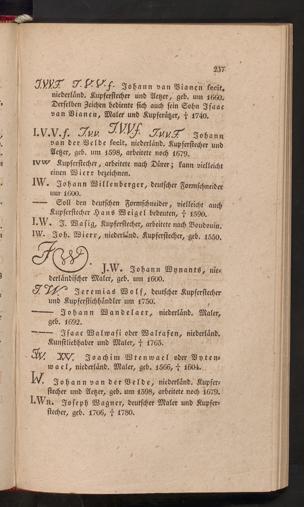 237
J.V.V.F J.V.V.f. Johann van Vianen fecit,
niederländ. Kupferstecher und Aetzer, geb. um 1660.
Derselben Zeichen bediente sich auch sein Sohn Isaac
van Vianen, Maler und Kupferätzer, † 1740.
I.V.V.f. J.v.v. J.V.V.f. J.v.v.F Johann
van der Velde fecit, niederländ. Kupferstecher und
Aetzer, geb. um 1598, arbeitete noch 1679.
IVW Kupferstecher, arbeitete nach Dürer; kann vielleicht
einen Wierx bezeichnen.
IW. Johann Willenberger, deutscher Formschneider
um 1600.
— Soll den deutschen Formschneider, vielleicht auch
Kupferstecher Hans Weigel bedeuten, † 1590.
I.W. J. Wasig, Kupferstecher, arbeitete nach Boudouin.
IW. Joh. Wierx, niederländ. Kupferstecher, geb. 1550.
JW. J.W. Johann Wynants, nie-
derländischer Maler, geb. um 1600.
J.W. Jeremias Wolf, deutscher Kupferstecher
und Kupferstichhändler um 1750.
— Johann Wandelaer, niederländ. Maler,
geb. 1692.
— Isaac Walwasi oder Walrafen, niederländ.
Kunstliebhaber und Maler, † 1765.
Jw. XV. Joachim Wtenwael oder Uyten-
wael, niederländ. Maler, geb. 1566, † 1604.
IV. Johann van der Velde, niederländ. Kupfer-
stecher und Aetzer, geb. um 1598, arbeitete noch 1679.
I.Wn. Joseph Wagner, deutscher Maler und Kupfer-
stecher, geb. 1706, † 1780.